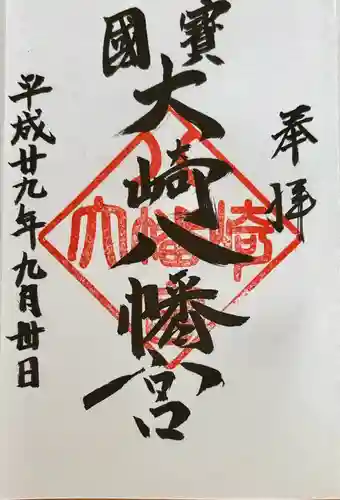 奉拝
國寳
大崎八幡宮
平成廿九年九月卅日
大崎八幡宮